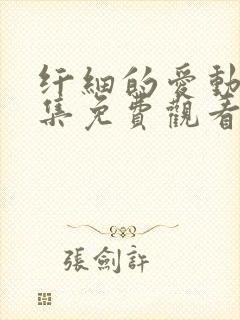 纤細的愛動
集免費觀看
張劍許